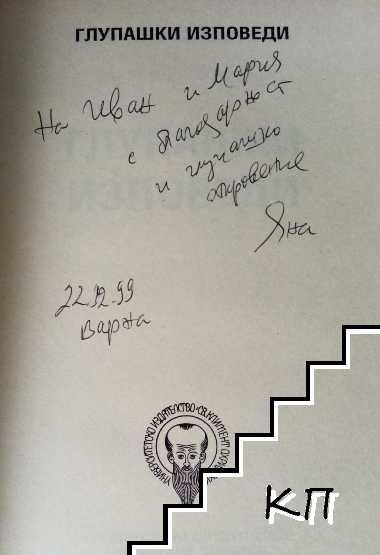 ГЛУПАШКИ ИЗПОВЕДИ
На Иван и Мария
с благодарност
и глупашко
откровение
Яна
22.12.99
Варна
УНИВЕРСИТЕТСКО ИЗДАТЕЛСТВО · СВ. КЛИМЕНТ
КП